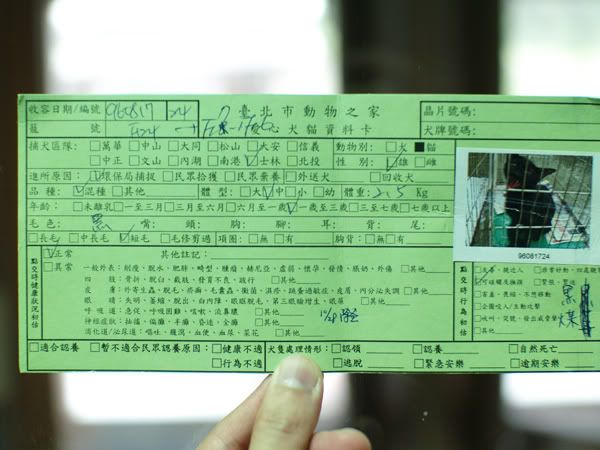 收容日期/編號 960817 24 臺北市動物之家 晶片號碼:
籠 號 愛心犬貓資料卡 犬牌號碼:
捕犬區隊: □萬華 □中山 □大同 □松山 □大安 □信義 動物別: □犬 ■貓
□中正 □文山 □內湖 □南港 ☑士林 □北投 性 別: ☑雄 □雌
進所原因: ☑環保局捕捉 □民眾拾獲 □民眾棄養 □外送犬 □回收犬
品 種: ☑混種 □其他 體 型: □大 ☑中 □小 □幼 體重: 2.5 Kg
年齡: □未離乳 □一至三月 □三月至六月 □六月至一歲 ☑一歲至三歲 □三至七歲 □七歲以上
毛 色: 黑 嘴: 頭: 胸: 腳: 耳: 背: 尾:
□長毛 □中長毛 ☑短毛 □毛修剪過 項圈: □無 □有 胸背: □無 □有
96081724
點交時健康狀況初估
☑正常 其他註記:
□異常 一般外表: 削瘦, 脫水, 肥胖, 畸型, 腫瘤, 赫尼亞, 虛弱, 懷孕, 發情, 脹奶, 外傷 □其他
四 肢: 骨折, 脫臼, 截肢, 發育不良, 跛行 □其他
皮 膚: 外寄生蟲, 脫毛, 疥癬, 毛囊蟲, 黴菌, 濕疹, 跳蚤過敏症, 皮屑, 內分泌失調 □其他
眼 睛: 失明, 萎縮, 脫出, 白內障, 眼瞼脫毛, 第三眼瞼增生, 眼屎 □其他
呼 吸 道: 急促, 呼吸困難, 咳嗽, 流鼻膿 □其他
神經症狀: 抽搐, 偏癱, 半癱, 昏迷, 全癱 □其他
消化道/泌尿道: 嘔吐, 糞瀉, 血便, 血尿, 菜花 □其他
點交時行為初估
□友善, 親近人
□可碰觸及撫摸
□害羞, 畏縮, 不想移動
□企圖咬人/主動攻擊
□其他
黑
□適合認養 □暫不適合民眾認養原因: □健康不適 犬隻處理情形: □認領 □認養 □自然死亡
□行為不適 □逃脫 □緊急安樂 □逾期安樂